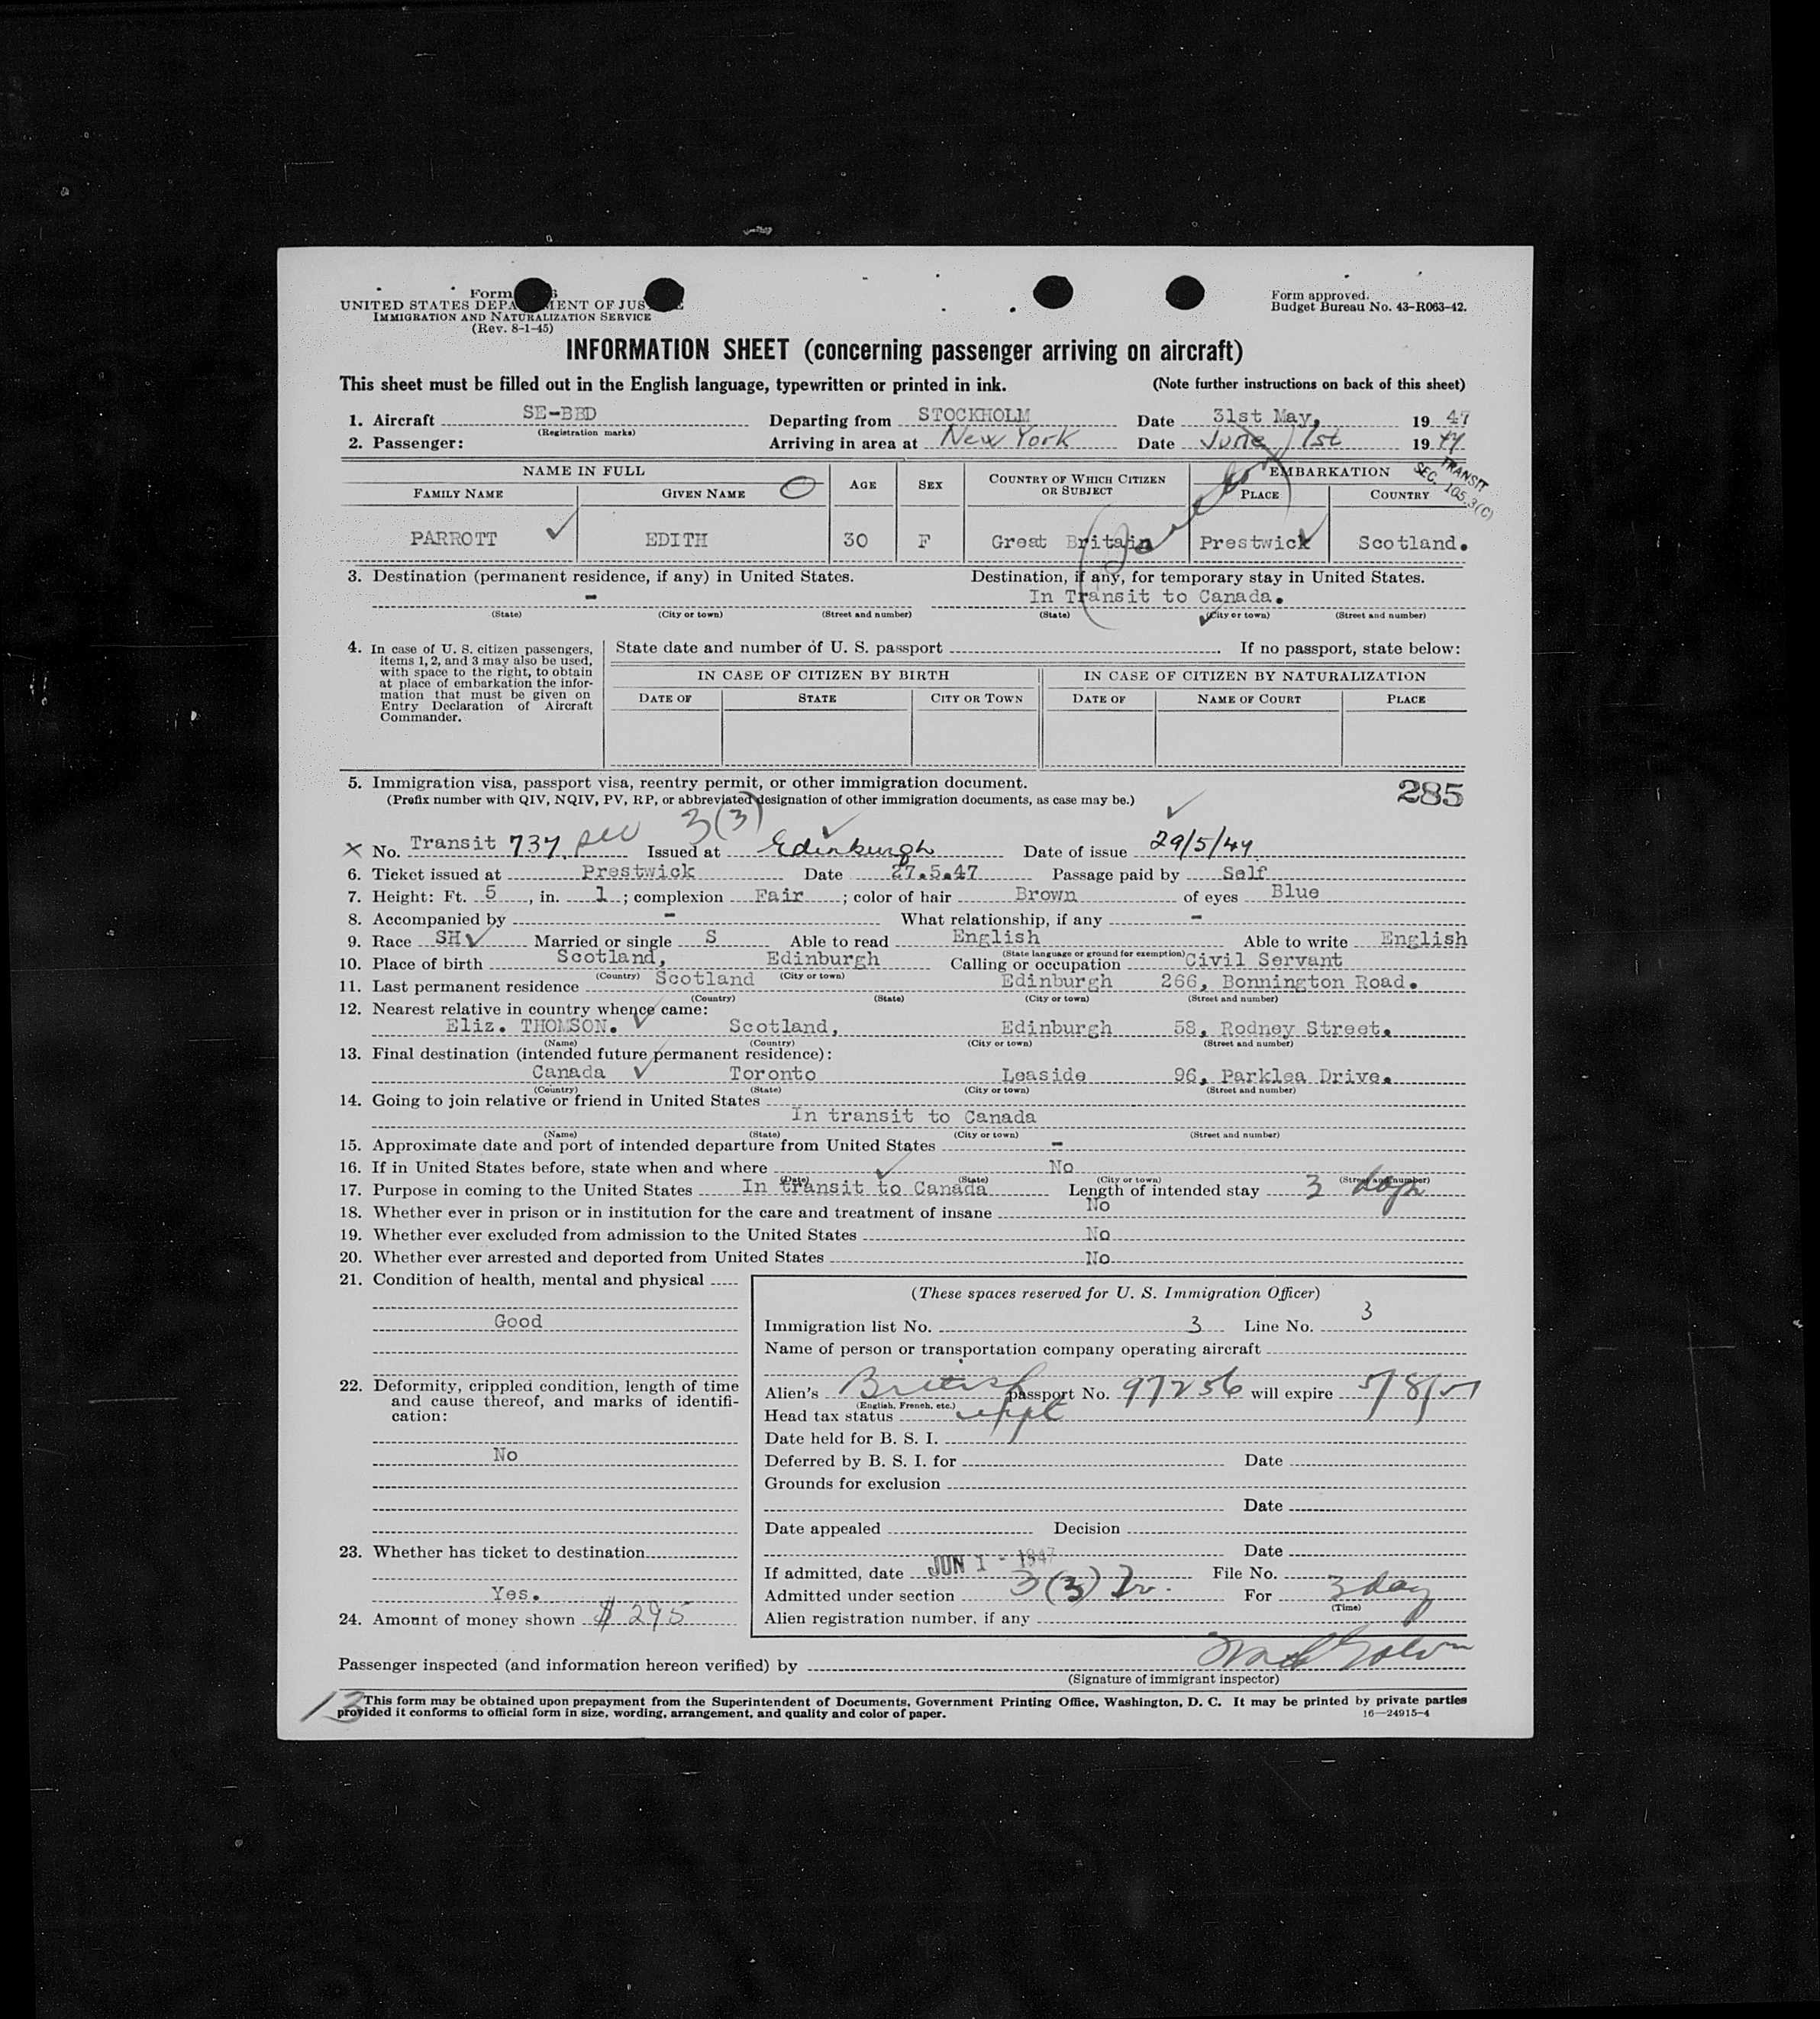 Form
UNITED STATES DEPARTMENT OF JUSTICE
IMMIGRATION AND NATURALIZATION SERVICE
(Rev. 8-1-45)
Form approved.
Budget Bureau No. 43-R063-42.
INFORMATION SHEET (concerning passenger arriving on aircraft)
This sheet must be filled out in the English language, typewritten or printed in ink. (Note further instructions on back of this sheet)
1. Aircraft SE-BBD Departing from STOCKHOLM Date 31st May, 19 47
(Registration marks)
2. Passenger: Arriving in area at New York Date June 1st 19 47
TRANSIT
SEC. 105.3(C)
NAME IN FULL AGE SEX COUNTRY OF WHICH CITIZEN OR SUBJECT EMBARKATION
FAMILY NAME GIVEN NAME PLACE COUNTRY
PARROTT EDITH 30 F Great Britain Prestwick Scotland.
3. Destination (permanent residence, if any) in United States. Destination, if any, for temporary stay in United States.
- In Transit to Canada.
(State) (City or town) (Street and number) (State) (City or town) (Street and number)
4. In case of U. S. citizen passengers, items 1, 2, and 3 may also be used, with space to the right, to obtain at place of embarkation the information that must be given on Entry Declaration of Aircraft Commander.
State date and number of U. S. passport If no passport, state below:
IN CASE OF CITIZEN BY BIRTH IN CASE OF CITIZEN BY NATURALIZATION
DATE OF STATE CITY OR TOWN DATE OF NAME OF COURT PLACE
5. Immigration visa, passport visa, reentry permit, or other immigration document. 285
(Prefix number with QIV, NQIV, PV, RP, or abbreviated designation of other immigration documents, as case may be.)
3(3)
X No. Transit 737 sec Issued at Edinburgh Date of issue 29/5/47
6. Ticket issued at Prestwick Date 27.5.47 Passage paid by Self
7. Height: Ft. 5, in. 1; complexion Fair; color of hair Brown of eyes Blue
8. Accompanied by - What relationship, if any -
9. Race SH Married or single S Able to read English Able to write English
(State language or ground for exemption)
10. Place of birth Scotland, Edinburgh Calling or occupation Civil Servant
(Country) (City or town)
11. Last permanent residence Scotland Edinburgh 266, Bonnington Road.
(Country) (State) (City or town) (Street and number)
12. Nearest relative in country whence came:
Eliz. THOMSON. Scotland, Edinburgh 58, Rodney Street.
(Name) (Country) (City or town) (Street and number)
13. Final destination (intended future permanent residence):
Canada Toronto Leaside 96, Parklea Drive.
(Country) (State) (City or town) (Street and number)
14. Going to join relative or friend in United States
In transit to Canada
(Name) (State) (City or town) (Street and number)
15. Approximate date and port of intended departure from United States -
16. If in United States before, state when and where No
(Date) (State) (City or town) (Street and number)
17. Purpose in coming to the United States In transit to Canada Length of intended stay 3 days
18. Whether ever in prison or in institution for the care and treatment of insane No
19. Whether ever excluded from admission to the United States No
20. Whether ever arrested and deported from United States No
21. Condition of health, mental and physical
Good
22. Deformity, crippled condition, length of time and cause thereof, and marks of identification:
No
23. Whether has ticket to destination
Yes.
24. Amount of money shown $295
(These spaces reserved for U. S. Immigration Officer)
Immigration list No. 3 Line No. 3
Name of person or transportation company operating aircraft
Alien's British passport No. 97256 will expire 5/8/51
(English, French, etc.)
Head tax status
Date held for B. S. I.
Deferred by B. S. I. for Date
Grounds for exclusion
Date
Date appealed Decision
Date
If admitted, date JUN 1 - 1947 File No.
Admitted under section 3(3) Tr. For 3 day
(Time)
Alien registration number, if any
Passenger inspected (and information hereon verified) by
(Signature of immigrant inspector)
13
This form may be obtained upon prepayment from the Superintendent of Documents, Government Printing Office, Washington, D. C. It may be printed by private parties
provided it conforms to official form in size, wording, arrangement, and quality and color of paper. 16—24915-4